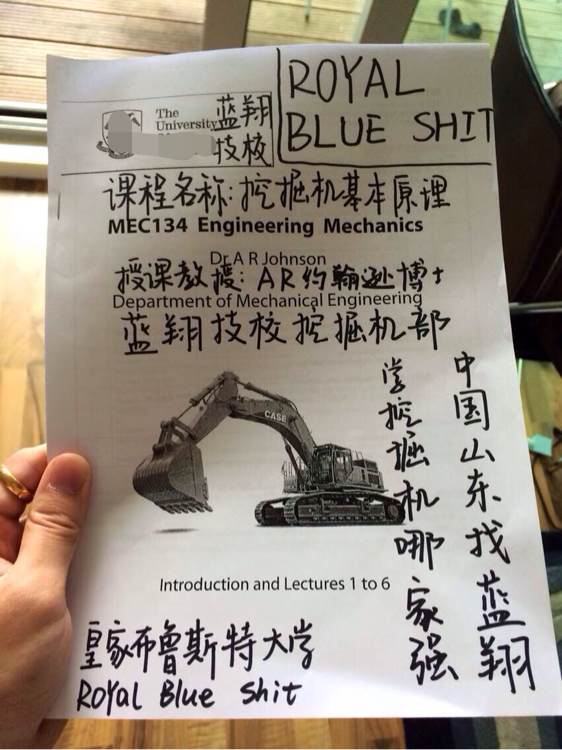 The
University
蓝翔
技校
ROYAL
BLUE SHIT
课程名称:挖掘机基本原理
MEC134 Engineering Mechanics
Dr A R Johnson
授课教授:AR约翰逊博士
Department of Mechanical Engineering
蓝翔技校挖掘机部
CASE
学挖掘机哪家强
中国山东找蓝翔
Introduction and Lectures 1 to 6
皇家布鲁斯特大学
Royal Blue Shit